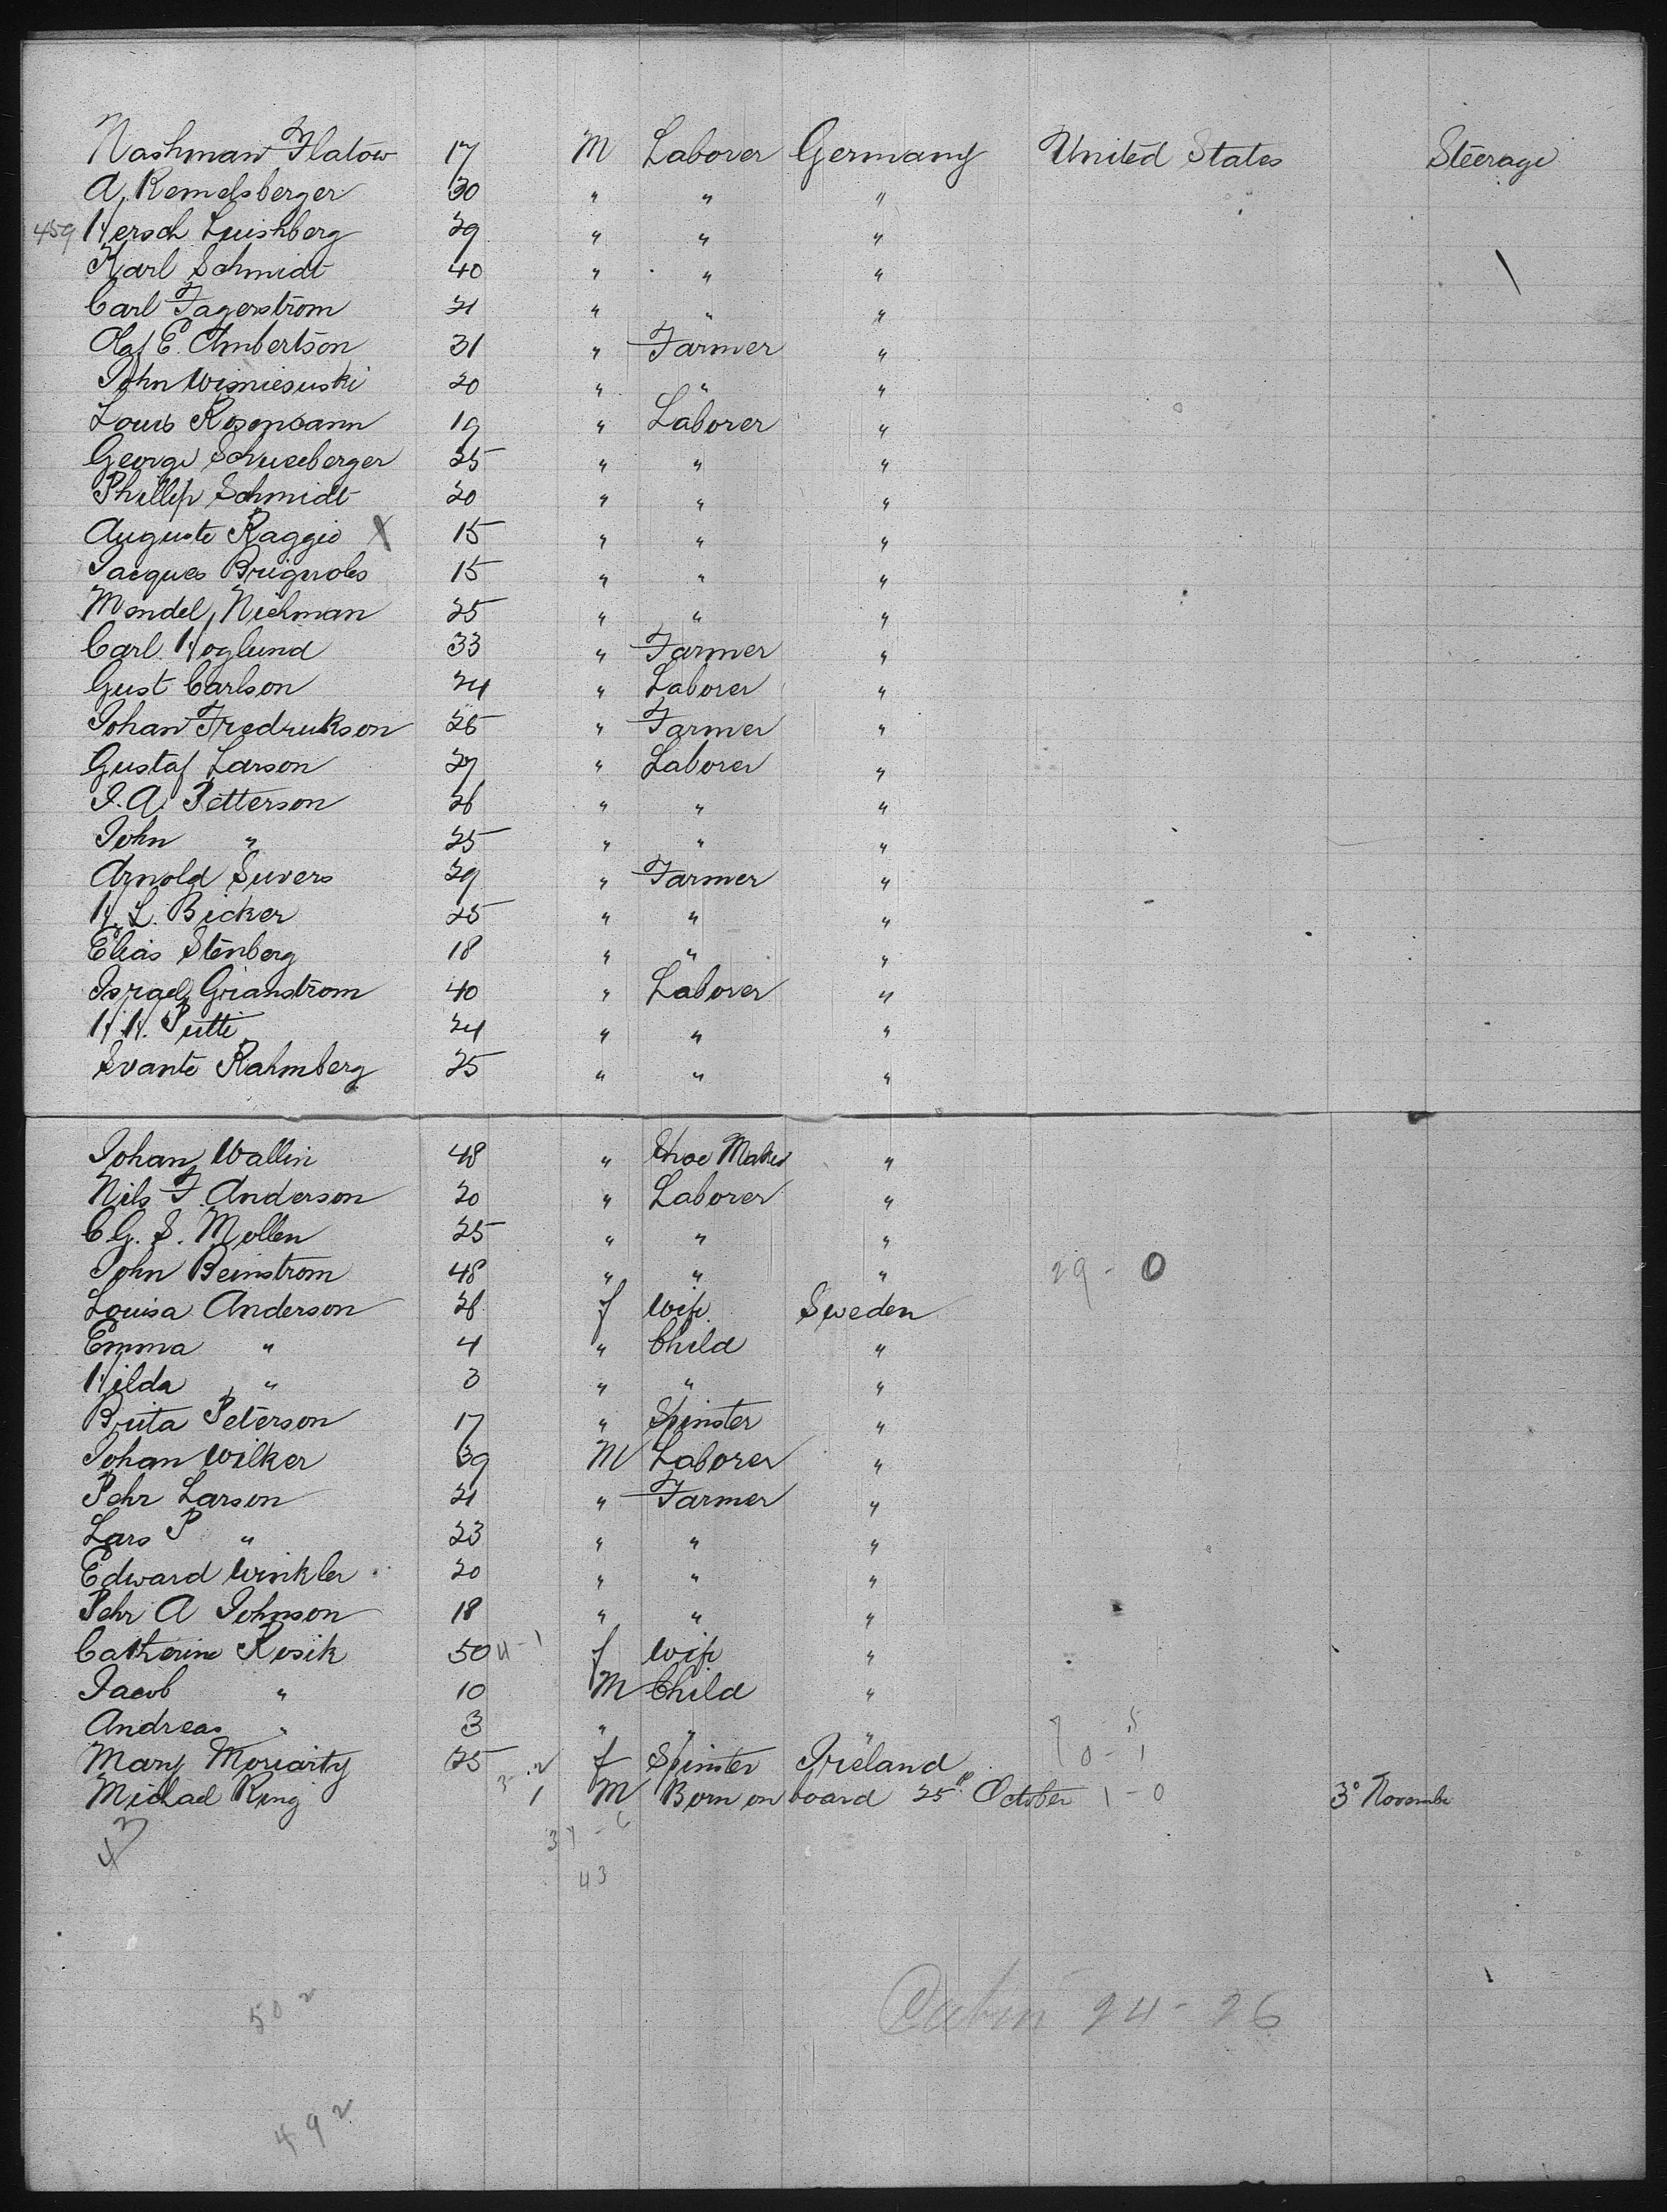 Nashman Flatow 17 M Laborer Germany United States Steerage
A. Remelsberger 30 " " "
459 Hersch Luishberg 29 " " "
Karl Schmidt 40 " " "
Carl Fagerström 21 " " "
Olaf E. Ambertson 31 " Farmer "
John Wisniesuski 20 " " "
Louis 19 " Laborer "
George Schneeberger 25 " " "
Phillip Schmidt 20 " " "
Auguste Raggio X 15 " " "
Jacques Brignoles 15 " " "
Mendel Nichman 25 " " "
Carl Hoglund 33 " Farmer "
Gust Carlson 24 " Laborer "
Johan Fredrukson 26 " Farmer "
Gustaf Larson 27 " Laborer "
J. A. Petterson 26 " " "
John " 25 " " "
Arnold Suvers 29 " Farmer "
H. L. Bicker 25 " " "
Elias Stenberg 18 " " "
Israel Granstrom 40 " Laborer "
H. H. Putti 24 " " "
Svante Rahmberg 25 " " "
Johan Wallin 48 " Shoe Maker "
Nils F. Anderson 20 " Laborer "
C G. S. Mollen 25 " " "
John Beinstrom 48 " " " 29 - 0
Louisa Anderson 28 f Wife Sweden
Emma " 4 " Child "
Hilda " 3 " " "
Brita Peterson 17 " Spinster "
Johan Wilker 39 M Laborer "
Pehr Larson 21 " Farmer "
Lars P " 23 " " "
Edward Winkler 20 " " "
Pehr A Johnson 18 " " "
Catherine Rusik 50 4-1 f Wife "
Jacob " 10 M Child "
Andreas " 3 " " " 7 - 5
Mary Moriarty 25 3-2 f Spinster Ireland 0 - 1
Michael King 1 M Born on board 25th October 1 - 0 3° Novembe
43 37 - 6
43
Cabin 24 - 26
502
492